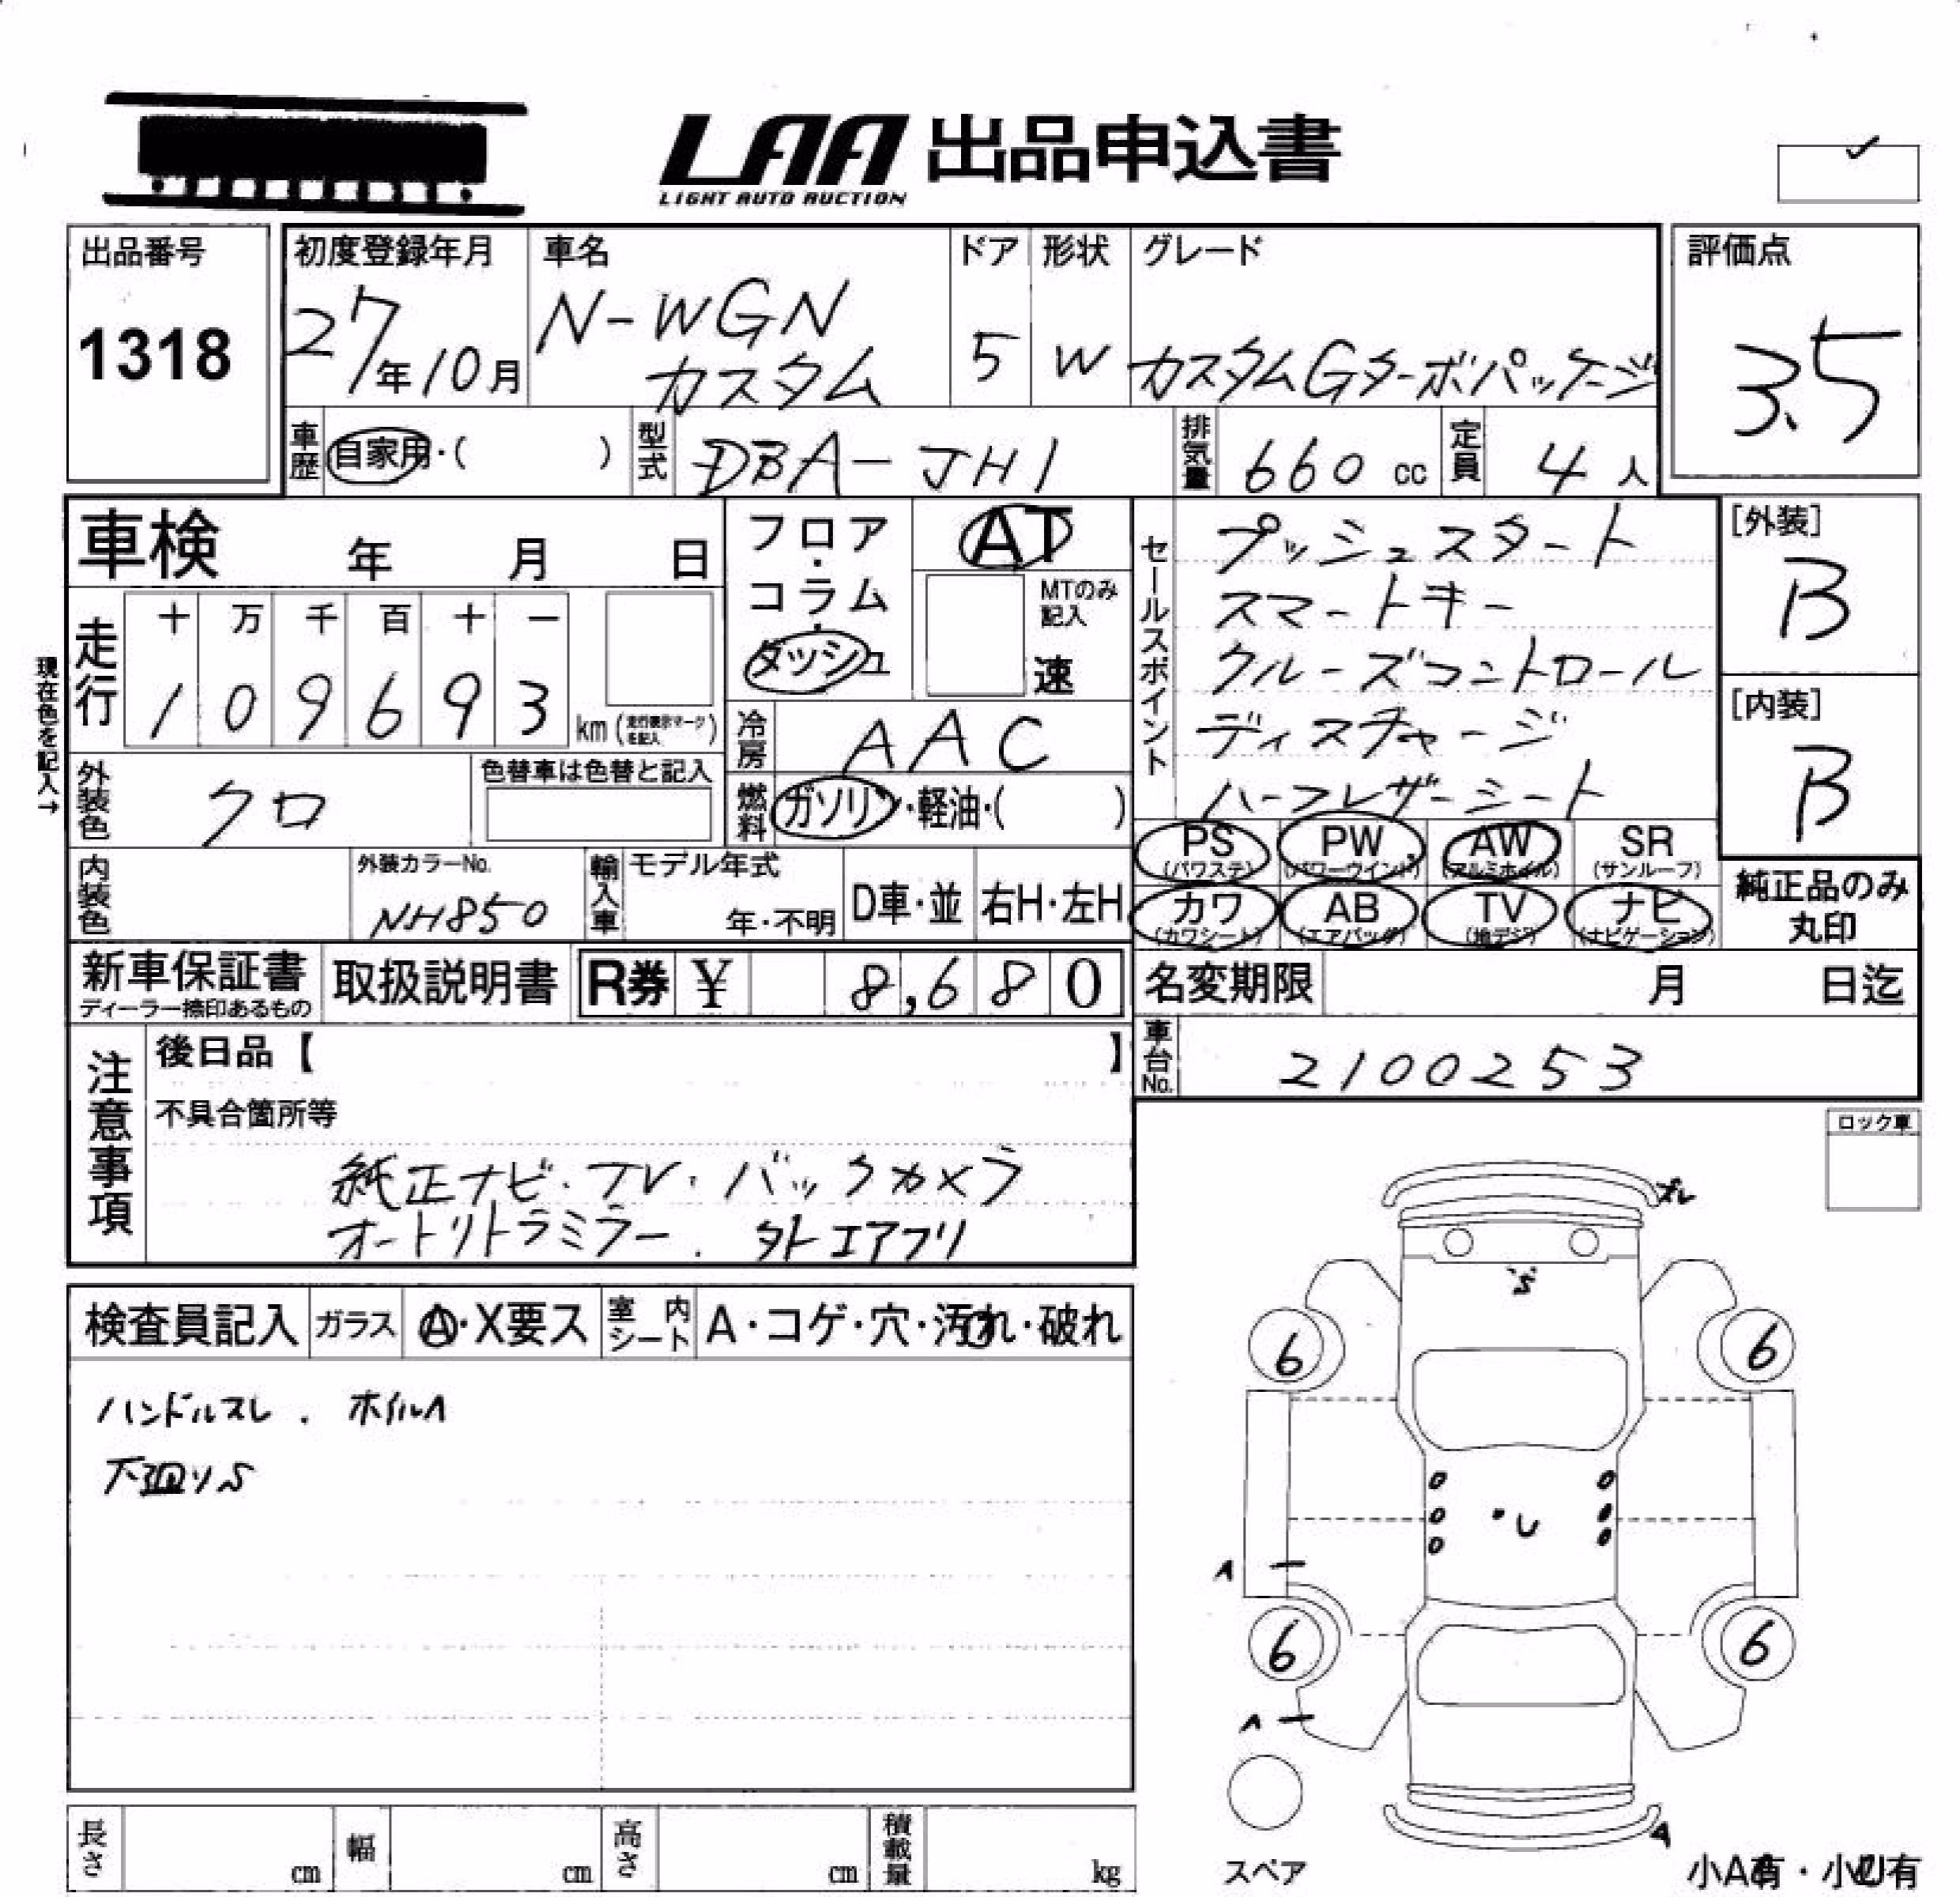 LAA 出品申込書
LIGHT AUTO AUCTION
出品番号
1318
初度登録年月
27年10月
車名
N-WGN
カスタム
ドア
5
形状
W
グレード
カスタムGターボパッケージ
評価点
3.5
車歴
自家用・( )
型式
DBA-JH1
排気量
660 cc
定員
4 人
車検 年 月 日
フロア
・
コラム
・
ダッシュ
AT
MTのみ
記入
速
セールスポイント
プッシュスタート
スマートキー
クルーズコントロール
ディスチャージ
ハーフレザーシート
[外装]
B
[内装]
B
現在色を記入→
走行
十 万 千 百 十 一
1 0 9 6 9 3
km (走行表示マークを記入)
冷房
AAC
外装色
クロ
色替車は色替と記入
燃料
ガソリン・軽油・( )
PS
(パワステ)
PW
(パワーウインド)
AW
(アルミホイル)
SR
(サンルーフ)
カワ
(カワシート)
AB
(エアバッグ)
TV
(地デジ)
ナビ
(ナビゲーション)
純正品のみ
丸印
内装色
外装カラーNo.
NH850
輸入車
モデル年式
年・不明
D車・並
右H・左H
新車保証書
ディーラー捺印あるもの
取扱説明書
R券 ¥ 8,680
名変期限 月 日迄
車台No.
2100253
注意事項
後日品【 】
不具合箇所等
純正ナビ・TV・バックカメラ
オートリトラミラー . 外エアフリ
ロック車
検査員記入
ガラス
A・X要ス
室内シート
A・コゲ・穴・汚れ・破れ
ハンドルスレ . ホイルA
下廻りS
ズレ
S
6
6
U
A
6
6
A
A
スペア
長さ cm
幅 cm
高さ cm
積載量 kg
小A有・小U有